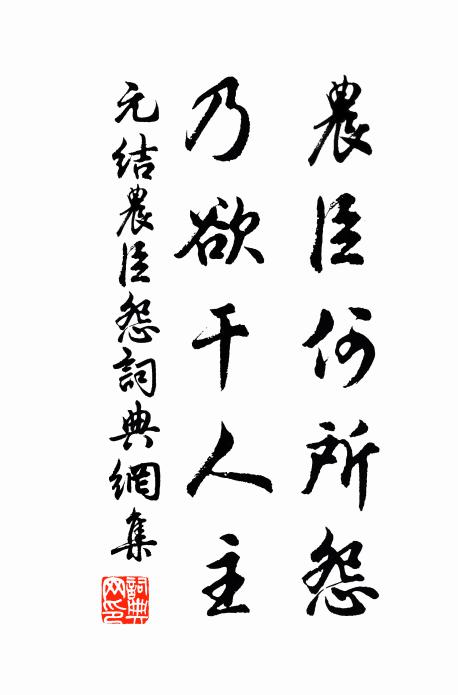 農臣何所怨
乃欲干人主
元结農臣怨詞典網集
詞典网印